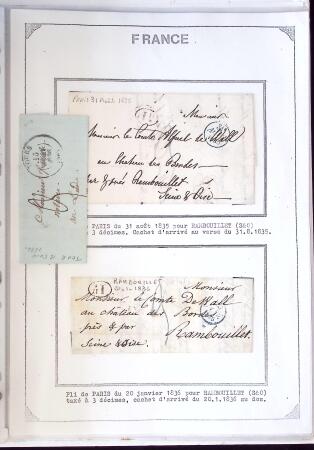 FRANCE
PARIS 31 Août 1835
Monsieur
Monsieur le Comte Alfred de Wall
au château des Bordes
par & près Rambouillet
Seine & Oise
PARIS du 31 août 1835 pour RAMBOUILLET (S&O)
à 3 décimes. Cachet d'arrivé au verso du 31.8.1835.
RAMBOUILLET
1836
Monsieur
Monsieur le Comte De Wall
au château des Bordes
près & par Rambouillet
Seine & Oise
Pli de PARIS du 20 janvier 1836 pour RAMBOUILLET (S&O)
taxé à 3 décimes, cachet d'arrivé du 20.1.1836 au dos.